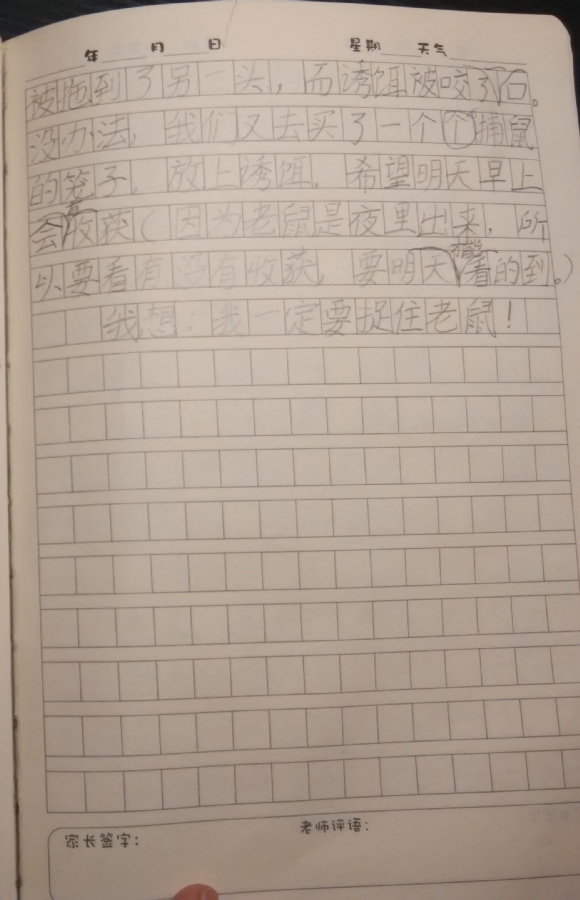 年 月 日 星期 天气
被拖到了另一头，而诱饵被咬了口。
没办法，我们又去买了一个个捕鼠
的笼子，放上诱饵，希望明天早上
会有收获（因为老鼠是夜里出来，所
以要看有没有收获，要明天才能看的到。）
我想：我一定要捉住老鼠！
家长签字：
老师评语：